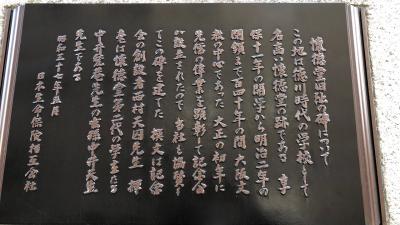 懐徳堂旧阯の碑について
この地は徳川時代の学校として
名高い懐徳堂の跡である 享
保十一年の開学から明治二年の
閉鎖まで百四十年の間 大阪文
教の中心であった 大正の初年に
先儒の偉業を顕彰して記念会
が設立されたので 当社も協賛し
てこの碑を建てた 撰文は記念
会の創設者西村天囚先生 揮
毫は懐徳堂第二代の学主たる
中井甃庵先生の玄孫中井天生
先生である
昭和三十七年五月
日本生命保険相互会社